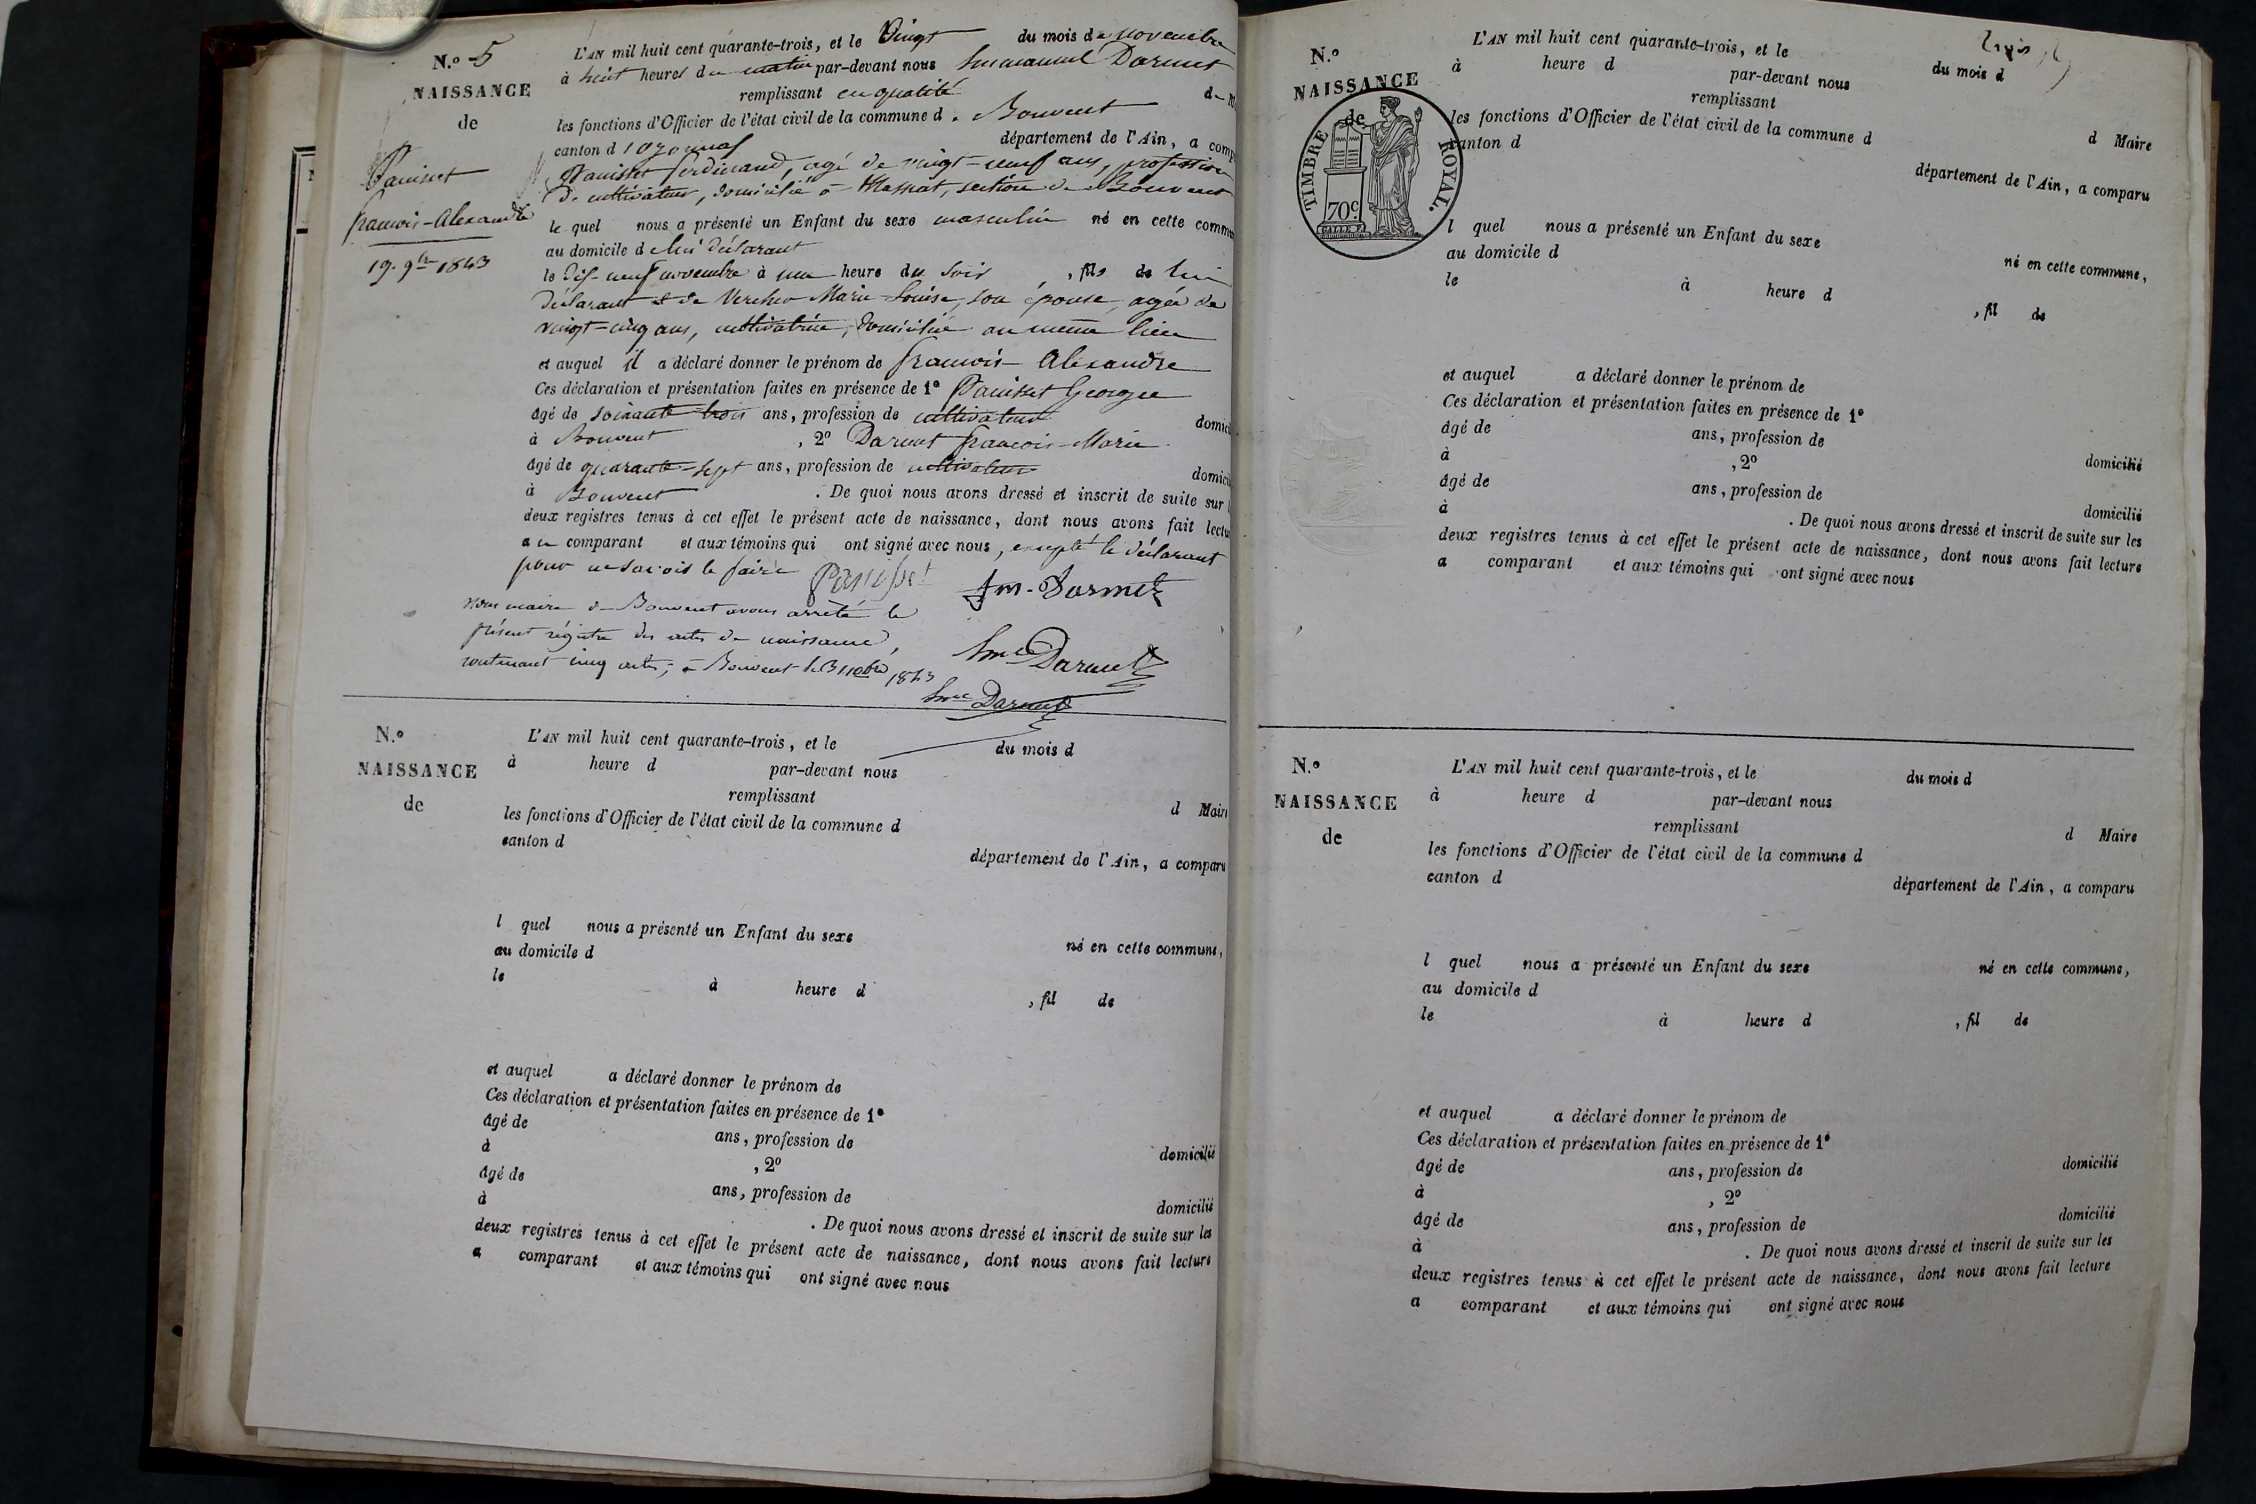 N.º 5
NAISSANCE
de
Panisset
françois-Alexandre
19. 9bre 1843
L'AN mil huit cent quarante-trois, et le Vingt du mois de novembre
à huit heures du matin par-devant nous Emmanuel Darmet
remplissant en qualité de M
les fonctions d'Officier de l'état civil de la commune d. Bouvent
canton d'oyonnax département de l'Ain, a comp
Panisset ferdinand, agé de vingt-neuf ans, profession
de cultivateur, domicilié à Massiat, section de Bouvent
le quel nous a présenté un Enfant du sexe masculin né en cette commu
au domicile de lui déclarant
le dix-neuf novembre à une heure du soir, fils de lui
déclarant et de Vercher Marie Louise, son épouse, agée de
vingt-cinq ans, cultivatrice, domiciliée au même lieu
et auquel il a déclaré donner le prénom de françois-Alexandre
Ces déclaration et présentation faites en présence de 1º Panisset George
âgé de soixante-trois ans, profession de cultivateur domici
à Bouvent, 2º Darmet françois-Marie
âgé de quarante-sept ans, profession de cultivateur domici
à Bouvent. De quoi nous avons dressé et inscrit de suite sur
deux registres tenus à cet effet le présent acte de naissance, dont nous avons fait lectu
au comparant et aux témoins qui ont signé avec nous, excepté le déclarant
pour ne savoir le faire Panisset fm-Darmet
nous maire de Bouvent avons arrêté le
présent régistre des actes de naissance,
contenant cinq actes; à Bouvent le 31 1843
Emel Darmet
Emel Darmet
N.º
NAISSANCE
de
L'AN mil huit cent quarante-trois, et le du mois d
à heure d par-devant nous
remplissant d Maire
les fonctions d'Officier de l'état civil de la commune d
canton d département de l'Ain, a comparu
l quel nous a présenté un Enfant du sexe né en cette commune,
au domicile d
le à heure d , fil de
et auquel a déclaré donner le prénom de
Ces déclaration et présentation faites en présence de 1º
âgé de ans, profession de domicilié
à , 2º
âgé de ans, profession de domicilié
à . De quoi nous avons dressé et inscrit de suite sur les
deux registres tenus à cet effet le présent acte de naissance, dont nous avons fait lecture
a comparant et aux témoins qui ont signé avec nous
N.º
NAISSANCE
de
TIMBRE ROYAL.
70c
L'AN mil huit cent quarante-trois, et le du mois d
à heure d par-devant nous
remplissant d Maire
les fonctions d'Officier de l'état civil de la commune d
canton d département de l'Ain, a comparu
l quel nous a présenté un Enfant du sexe né en cette commune,
au domicile d
le à heure d , fil de
et auquel a déclaré donner le prénom de
Ces déclaration et présentation faites en présence de 1º
âgé de ans, profession de domicilié
à , 2º
âgé de ans, profession de domicilié
à . De quoi nous avons dressé et inscrit de suite sur les
deux registres tenus à cet effet le présent acte de naissance, dont nous avons fait lecture
a comparant et aux témoins qui ont signé avec nous
N.º
NAISSANCE
de
L'AN mil huit cent quarante-trois, et le du mois d
à heure d par-devant nous
remplissant d Maire
les fonctions d'Officier de l'état civil de la commune d
canton d département de l'Ain, a comparu
l quel nous a présenté un Enfant du sexe né en cette commune,
au domicile d
le à heure d , fil de
et auquel a déclaré donner le prénom de
Ces déclaration et présentation faites en présence de 1º
âgé de ans, profession de domicilié
à , 2º
âgé de ans, profession de domicilié
à . De quoi nous avons dressé et inscrit de suite sur les
deux registres tenus à cet effet le présent acte de naissance, dont nous avons fait lecture
a comparant et aux témoins qui ont signé avec nous